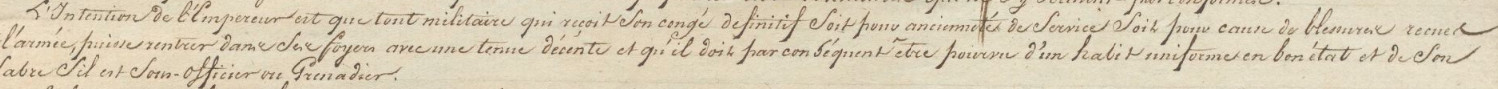 L'Intention de l'Empereur est que tout militaire qui reçoit son congé definitif soit pour ancienneté de Service soit pour cause de blessures recues
l'armée, puisse rentrer dans ses foyers avec une tenue décente et qu'il doit par conséquent etre pourvu d'un habit uniforme en bon état et de son
sabre s'il est Sous-officier ou Grenadier.